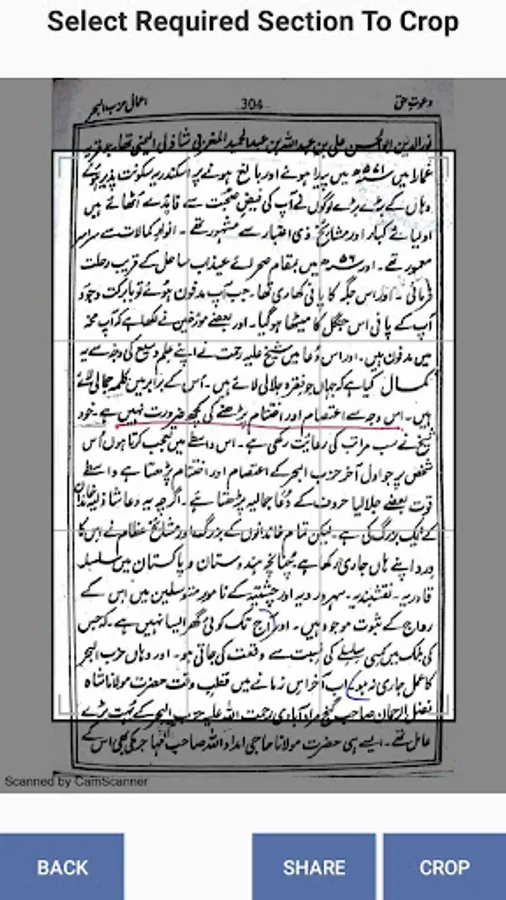 Select Required Section To Crop
دعوتِ حق
304
اعمال حزب البحر
نورالدین ابوالحسن علی بن عبداللہ بن عبدالحمید المغربی شاذلی الیمنی تھا۔ جو قریہ
غماط میں ۵۷۱ھ میں پیدا ہوئے اور بالغ ہونے پر اسکندریہ سکونت پذیر ہوئے
وہاں کے بڑے بڑے لوگوں نے آپ کی فیض صحبت سے فائدے اٹھائے ہیں
اولیائے کبار اور مشائخ ذی اعتبار سے مشہور تھے۔ انوار و کمالات سے سراسر
معمور تھے۔ اور ۶۵۶ھ میں بمقام صحرائے عیذاب ساحل کے قریب رحلت
فرمائی۔ اور اس جگہ کا پانی کھاری تھا۔ جب آپ مدفون ہوئے تو بابرکت وجود
آپ کے پانی اس جنگل کا میٹھا ہوگیا۔ اور بعضے مورخین نے لکھا ہے کہ آپ مخہ
میں مدفون ہیں۔ اور اس دعا میں شیخ علیہ رحمت نے اپنے علم وسیع کی وجہ سے یہ
کمال کیا ہے کہ جہاں جو فقرہ جلالی لائے ہیں۔ اس کے برابر میں کلمہ جمالی لائے
ہیں۔ اس وجہ سے اعتصام اور اختتام پڑھنے کی کچھ ضرورت نہیں ہے۔ خود
شیخ نے سب مراتب کی رعایت رکھی ہے۔ اس واسطے میں تعجب کرتا ہوں اُس
شخص پر جو اول آخر حزب البحر کے اعتصام اور اختتام پڑھتا ہے واسطے
قوت بعضے جلالیا حروف کے دُعا جمالیہ پڑھتا ہے۔ اگرچہ یہ دعا شاذلیہ خاندان
کے ایک بزرگ کی ہے۔ لیکن تمام خاندانوں کے بزرگ اور مشائخ عظام نے اس کا
ورد اپنے ہاں جاری رکھا ہے چنانچہ ہندوستان و پاکستان میں سلسلہ
قادریہ۔ نقشبندیہ۔ سہروردیہ اور چشتیہ کے نامور متوسلین میں اس کے
رواج کے ثبوت موجود ہیں۔ اور آج تک کوئی گھر ایسا نہیں ہے۔ کہ جس
کی ملک میں کسی سلسلے کی نسبت سے وقعت کی جاتی ہو۔ اور وہاں حزب البحر
کا عمل جاری نہ ہو۔ اب آخر اس زمانے میں قطب وقت حضرت مولانا شاہ
فضل الرحمان صاحب گنج مرادآبادی رحمت اللہ علیہ حزب البحر کے بہت بڑے
عامل تھے۔ ایسے ہی حضرت مولانا حاجی امداد اللہ صاحب مہاجر مکی بھی اس کے
Scanned by CamScanner
BACK
SHARE
CROP